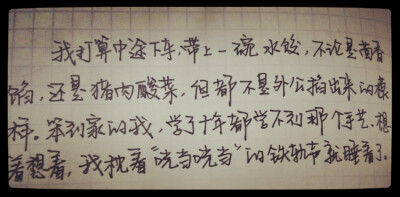 我打算中途下车,带上一碗水饺,不论是茴香
馅,还是猪肉酸菜,但都不是外公掐出来的褶
样。笨到家的我,学了十年都学不到那个手艺。想
着想着,我枕着“咣当咣当”的铁轨声就睡着了。